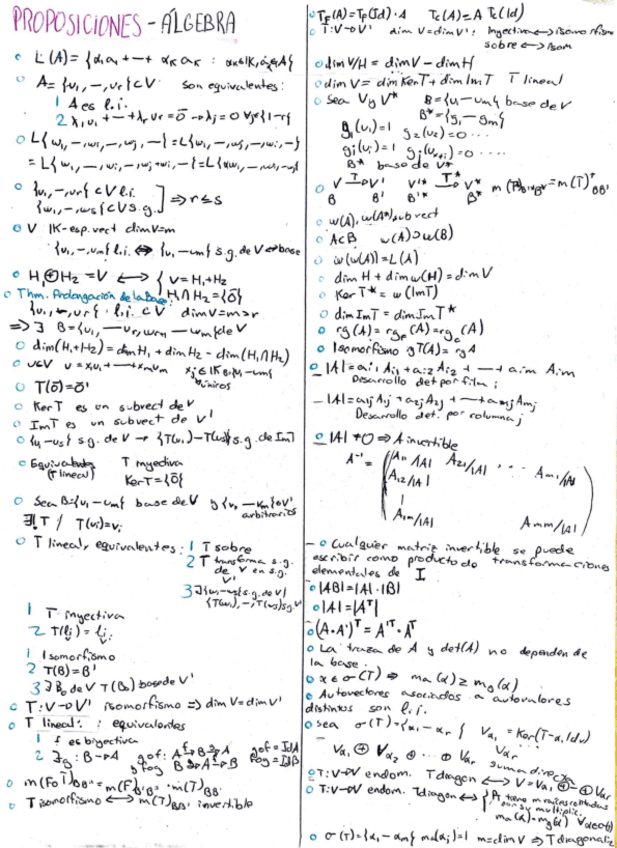 PROPOSICIONES - ÁLGEBRA
L(A) = {α₁a₁ + --- + αₖaₖ : αₖ∈IK, aⱼ∈A}
A = {v₁, --, vr} ⊂ V son equivalentes:
1 A es l.i.
2 λ₁v₁ + --- + λr vr = 0̄ → λj = 0 ∀j∈{1-r}
L{w₁, --, wi, --, wj, -} = L{w₁, --, wj, --, wi, -}
{v₁, --, vr} ⊂ V l.i.
{w₁, --, ws} ⊂ V s.g. ⇒ r ≤ s
V IK-esp. vect dimV = m
{v₁, --, vm} l.i. ⇔ {v₁ -- vm} s.g. de V ⇔ base
H₁ ⊕ H₂ = V ⟷ { V = H₁ + H₂
H₁∩H₂ = {0̄}
Thm. Prolongación de la Base:
{v₁, --, vr} l.i. ⊂ V dimV = m > r
⇒ ∃ B = {v₁, -- vr, wr+1 -- wm} de V
dim(H₁+H₂) = dim H₁ + dim H₂ - dim(H₁∩H₂)
T(0̄) = 0̄'
Ker T es un subvect de V
Im T es un subvect de V'
{v₁ - vs} s.g. de V → {T(v₁) - T(vs)} s.g. de Im T
Equivalentes (T lineal) T inyectiva
Ker T = {0̄}
Sea B = {v₁ -- vm} base de V y {v₁ -- vm} ⊂ V' arbitrarios
∃! T / T(vi) = vi
T lineal, equivalentes: 1 T sobre
2 T transforma s.g. de V en s.g. V'
1 T inyectiva
1 Isomorfismo
2 T(B) = B'
3 ∃ B₀ de V T(B₀) base de V'
T: V → V' isomorfismo ⇒ dim V = dim V'
T lineal: equivalentes
1 f es biyectiva
2 ∃g: B → A gof: A →f B →g A gof = IdA
fog B →g A →f B fog = IdB
T isomorfismo ⟷ m(T)BB' invertible
T_F(A) = T_F(Id) · A T_c(A) = A T_c(Id)
T: V → V' dim V = dim V': Inyectiva ⟷ isomorfismo
sobre ⟷ Isom
dim V/H = dim V - dim H
dim V = dim Ker T + dim Im T T lineal
Sea V y V* B = {v₁ - vm} base de V
B* = {g₁ - gm}
g₁(v₁) = 1 g₁(v₂) = 0 ...
B* base de V*
V →T V' V'* →T* V* m(T*)B'*B* = m(T)ᵀBB'
B B' B'* B*
A⊂B w(A) ⊃ w(B)
w(w(A)) = L(A)
dim H + dim w(H) = dim V
Ker T* = w(Im T)
dim Im T = dim Im T*
rg(A) = rg_F(A) = rg_c(A)
Isomorfismo
|A| = ai₁ Ai₁ + ai₂ Ai₂ + --- + aim Aim
Desarrollo det por fila i
- |A| = a₁j A₁j + a₂j A₂j + --- + amj Amj
Desarrollo det. por columna j
|A| ≠ 0 ⇒ A invertible
A⁻¹ = ( A₁₁/|A| A₂₁/|A| ... Am₁/|A|
A₁₂/|A|
|
A₁m/|A| Amm/|A| )
- Cualquier matriz invertible se puede
escribir como producto de transformaciones
elementales de I
|AB| = |A| · |B|
|A| = |Aᵀ|
(A·A')ᵀ = A'ᵀ · Aᵀ
La traza de A y det(A) no dependen de
la base.
α ∈ σ(T) ⇒ ma(α) ≥ mg(α)
Autovectores asociados a autovalores
distintos son l.i.
Sea σ(T) = {α₁ - αr} Vα₁ = Ker(T - α₁Idv)
Vα₁ ⊕ Vα₂ ⊕ ... ⊕ Vαr suma directa
T: V→V endom. T diagon ⟷ V = Vα₁ ⊕ -- ⊕ Vαr
T: V→V endom. T diagon ⟷
ma(α) = mg(α) ∀α∈σ(T)
σ(T) = {α₁ - αm} ma(αj) = 1 m = dim V ⇒ T diagonaliz